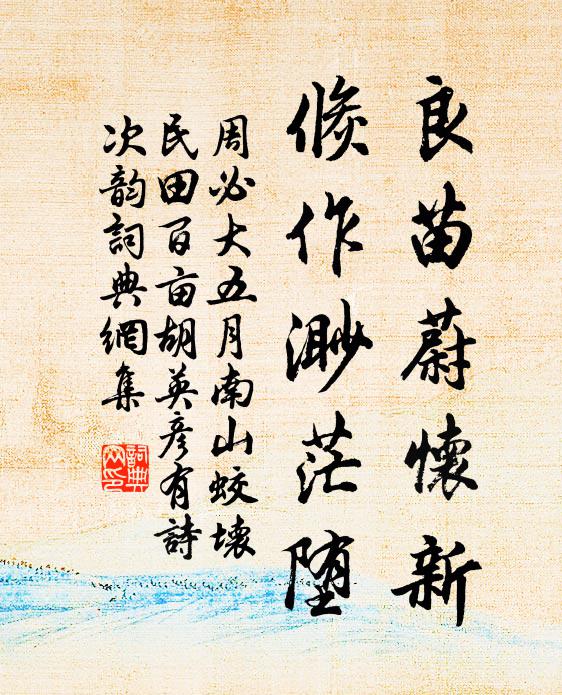 良苗蔚懷新
倐作渺茫堕
周必大五月南山蛟壊
民田百亩胡英彦有詩
次韵詞典網集
詞典網印